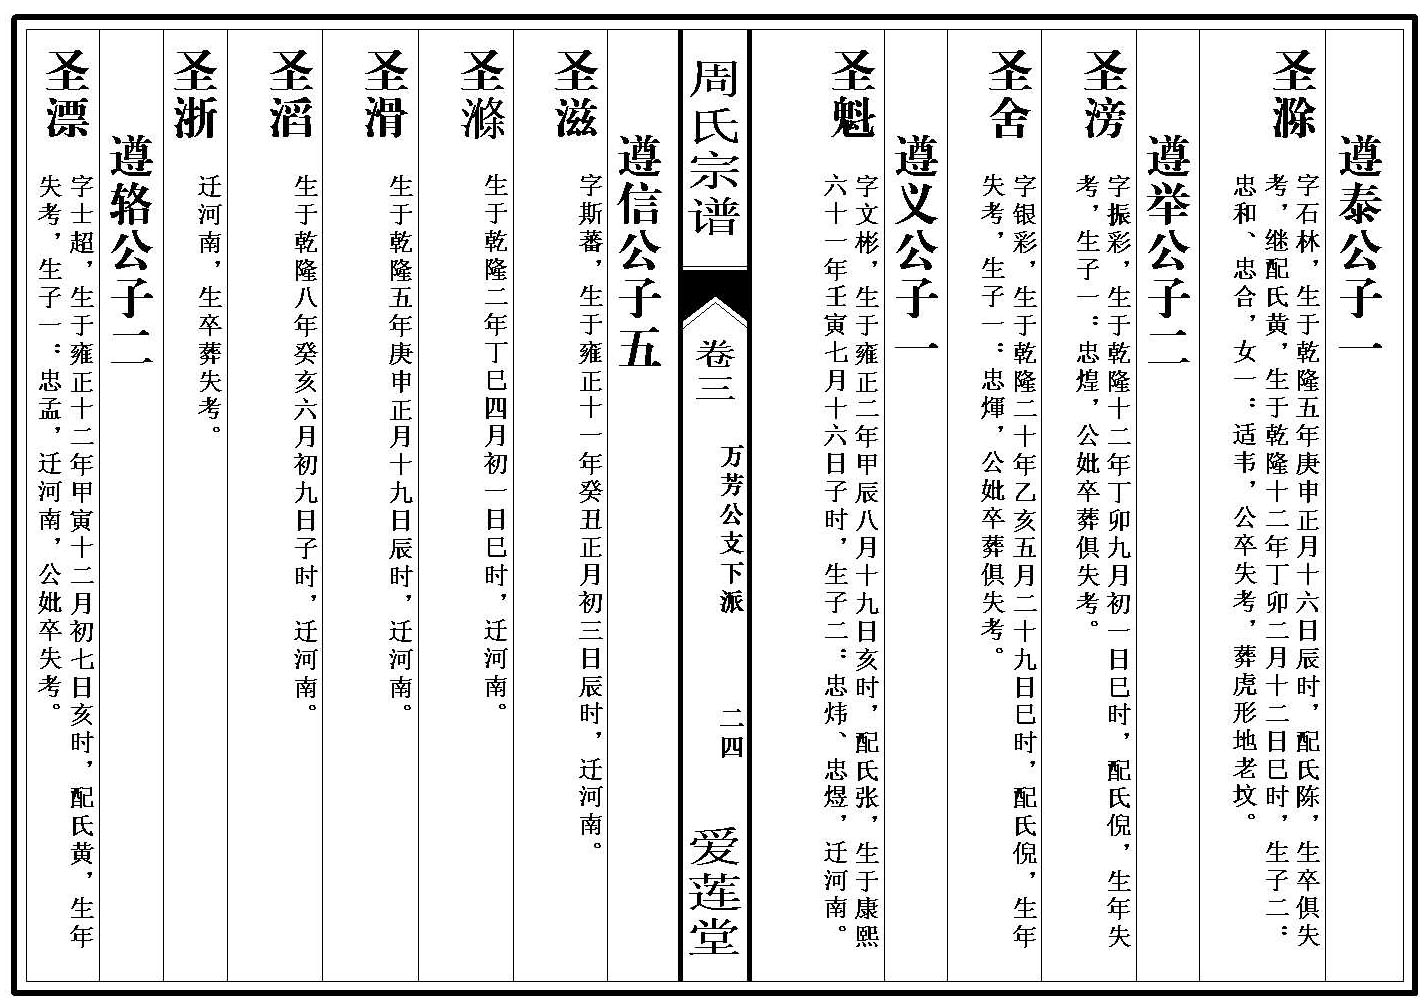 遵泰公子一
圣滁
字石林，生于乾隆五年庚申正月十六日辰时，配氏陈，生卒俱失
考，继配氏黄，生于乾隆十二年丁卯二月十二日巳时，生子二：
忠和、忠合，女一：适韦，公卒失考，葬虎形地老坟。
遵举公子二
圣滂
字振彩，生于乾隆十二年丁卯九月初一日巳时，配氏倪，生年失
考，生子一：忠煌，公妣卒葬俱失考。
圣舍
字银彩，生于乾隆二十年乙亥五月二十九日巳时，配氏倪，生年
失考，生子一：忠煇，公妣卒葬俱失考。
遵义公子一
圣魁
字文彬，生于雍正二年甲辰八月十九日亥时，配氏张，生于康熙
六十一年壬寅七月十六日子时，生子二：忠炜、忠煜，迁河南。
周氏宗谱
卷三
万芳公支下派
二四
爱莲堂
遵信公子五
圣滋
字斯蕃，生于雍正十一年癸丑正月初三日辰时，迁河南。
圣滌
生于乾隆二年丁巳四月初一日巳时，迁河南。
圣滑
生于乾隆五年庚申正月十九日辰时，迁河南。
圣滔
生于乾隆八年癸亥六月初九日子时，迁河南。
圣浙
迁河南，生卒葬失考。
遵辂公子二
圣漂
字士超，生于雍正十二年甲寅十二月初七日亥时，配氏黄，生年
失考，生子一：忠孟，迁河南，公妣卒失考。